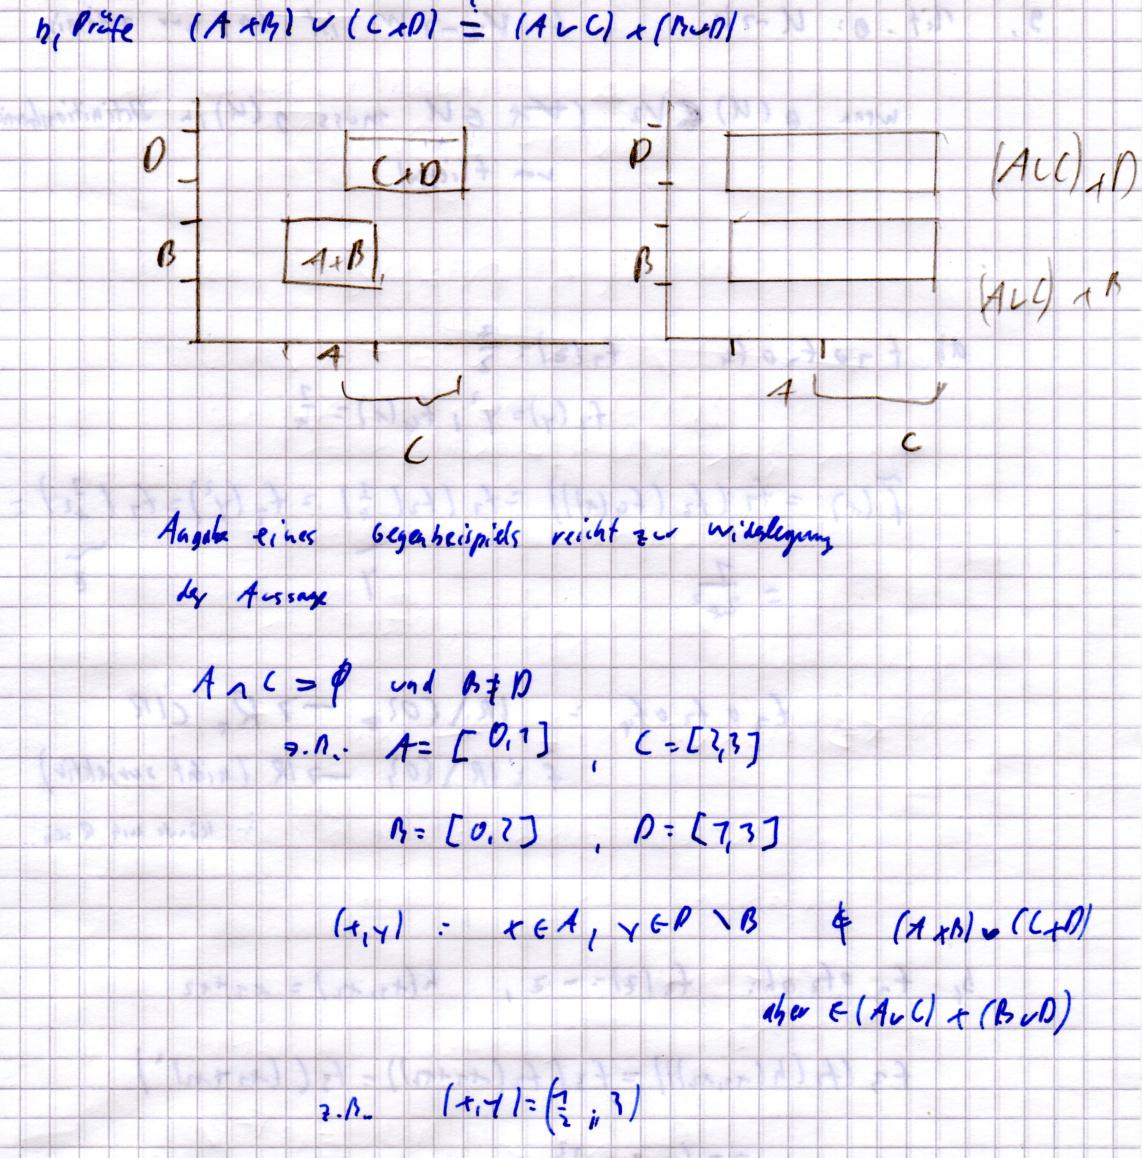 b, Prüfe (A×B) ∪ (C×D) ≟ (A∪C) × (B∪D)
D C×D D (A∪C)×D
B A×B B (A∪C)×B
A A
C C
Angabe eines Gegenbeispiels reicht zur Widerlegung
der Aussage
A ∩ C = ∅ und B ≠ D
z.B.: A = [0,1] , C = [2,3]
B = [0,2] , D = [1,3]
(x,y) : x ∈ A, y ∈ D \ B ∉ (A×B) ∪ (C×D)
aber ∈ (A∪C) × (B∪D)
z.B. (x,y) = (1/2, 3)